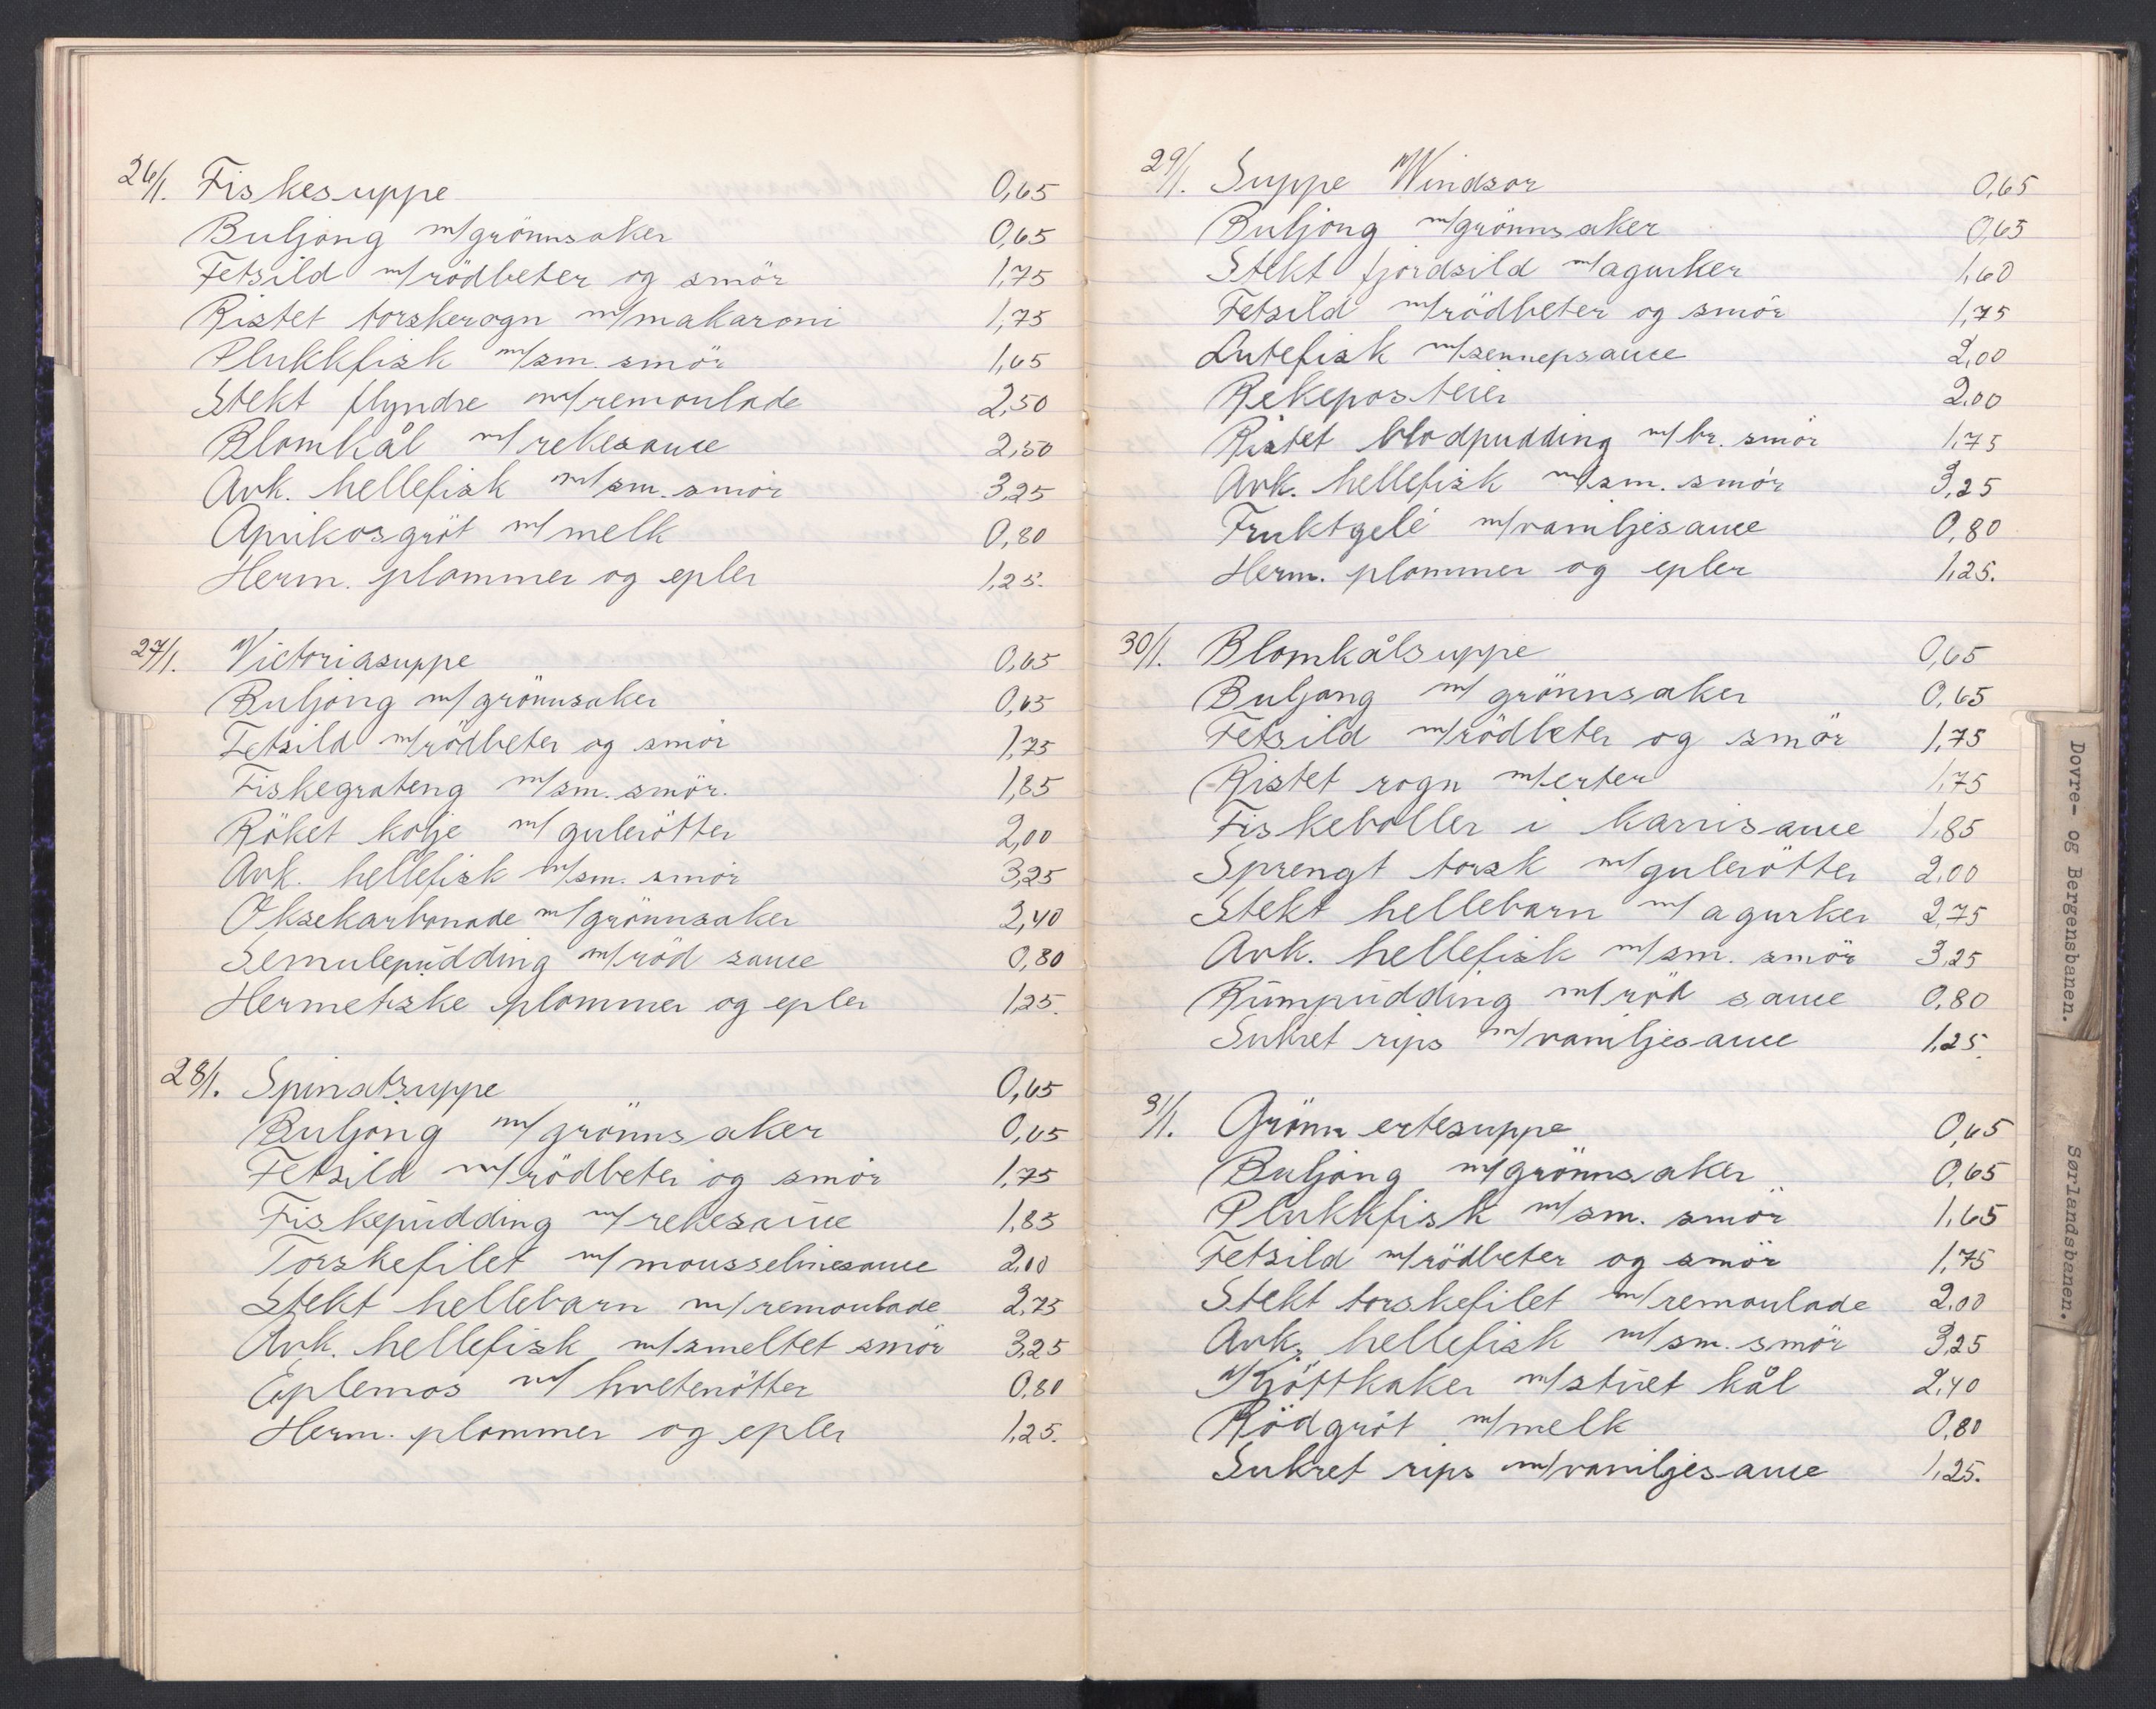 26/1. Fiskesuppe 0,65
Buljong m/grönnsaker 0,65
Fetsild m/rödbeter og smör 1,75
Ristet torskerogn m/makaroni 1,75
Plukkfisk m/sm. smör 1,65
Stekt flyndre m/remoulade 2,50
Blomkål m/rekesauce 2,50
Avk. hellefisk m/sm. smör 3,25
Aprikosgröt m/melk 0,80
Herm. plommer og epler 1,25.
27/1. Victoriasuppe 0,65
Buljong m/grönnsaker 0,65
Fetsild m/rödbeter og smör 1,75
Fiskegrateng m/sm. smör. 1,85
Röket kolje m/gulerötter 2,00
Avk. hellefisk m/sm. smör 3,25
Oksekarbonade m/grönnsaker 2,40
Semulepudding m/röd sauce 0,80
Hermetiske plommer og epler 1,25.
28/1. Spinatsuppe 0,65
Buljong m/grönnsaker 0,65
Fetsild m/rödbeter og smör 1,75
Fiskepudding m/rekesauce 1,85
Torskefilet m/mousselinesauce 2,00
Stekt hellebarn m/remoulade 2,75
Avk. hellefisk m/smeltet smör 3,25
Eplemos m/hvetenötter 0,80
Herm. plommer og epler 1,25.
29/1. Suppe Windsor 0,65
Buljong m/grönnsaker 0,65
Stekt fjordsild m/agurker 1,60
Fetsild m/rödbeter og smör 1,75
Lutefisk m/sennepsauce 2,00
Rekeposteier 2,00
Ristet blodpudding m/br. smör 1,75
Avk. hellefisk m/sm. smör 3,25
Fruktgelé m/vaniljesauce 0,80
Herm. plommer og epler 1,25.
30/1. Blomkålsuppe 0,65
Buljong m/grönnsaker 0,65
Fetsild m/rödbeter og smör 1,75
Ristet rogn m/erter 1,75
Fiskeboller i karrisauce 1,85
Sprengt torsk m/gulerötter 2,00
Stekt hellebarn m/agurker 2,75
Avk. hellefisk m/sm. smör 3,25
Rumpudding m/röd sauce 0,80
Sukret rips m/vaniljesauce 1,25.
31/1. Grönn ertesuppe 0,65
Buljong m/grönnsaker 0,65
Plukkfisk m/sm. smör 1,65
Fetsild m/rödbeter og smör 1,75
Stekt torskefilet m/remoulade 2,00
Avk. hellefisk m/sm. smör 3,25
Kjöttkaker m/stuet kål 2,40
Rödgröt m/melk 0,80
Sukret rips m/vaniljesauce 1,25.
Dovre- og Bergensbanen.
Sørlandsbanen.